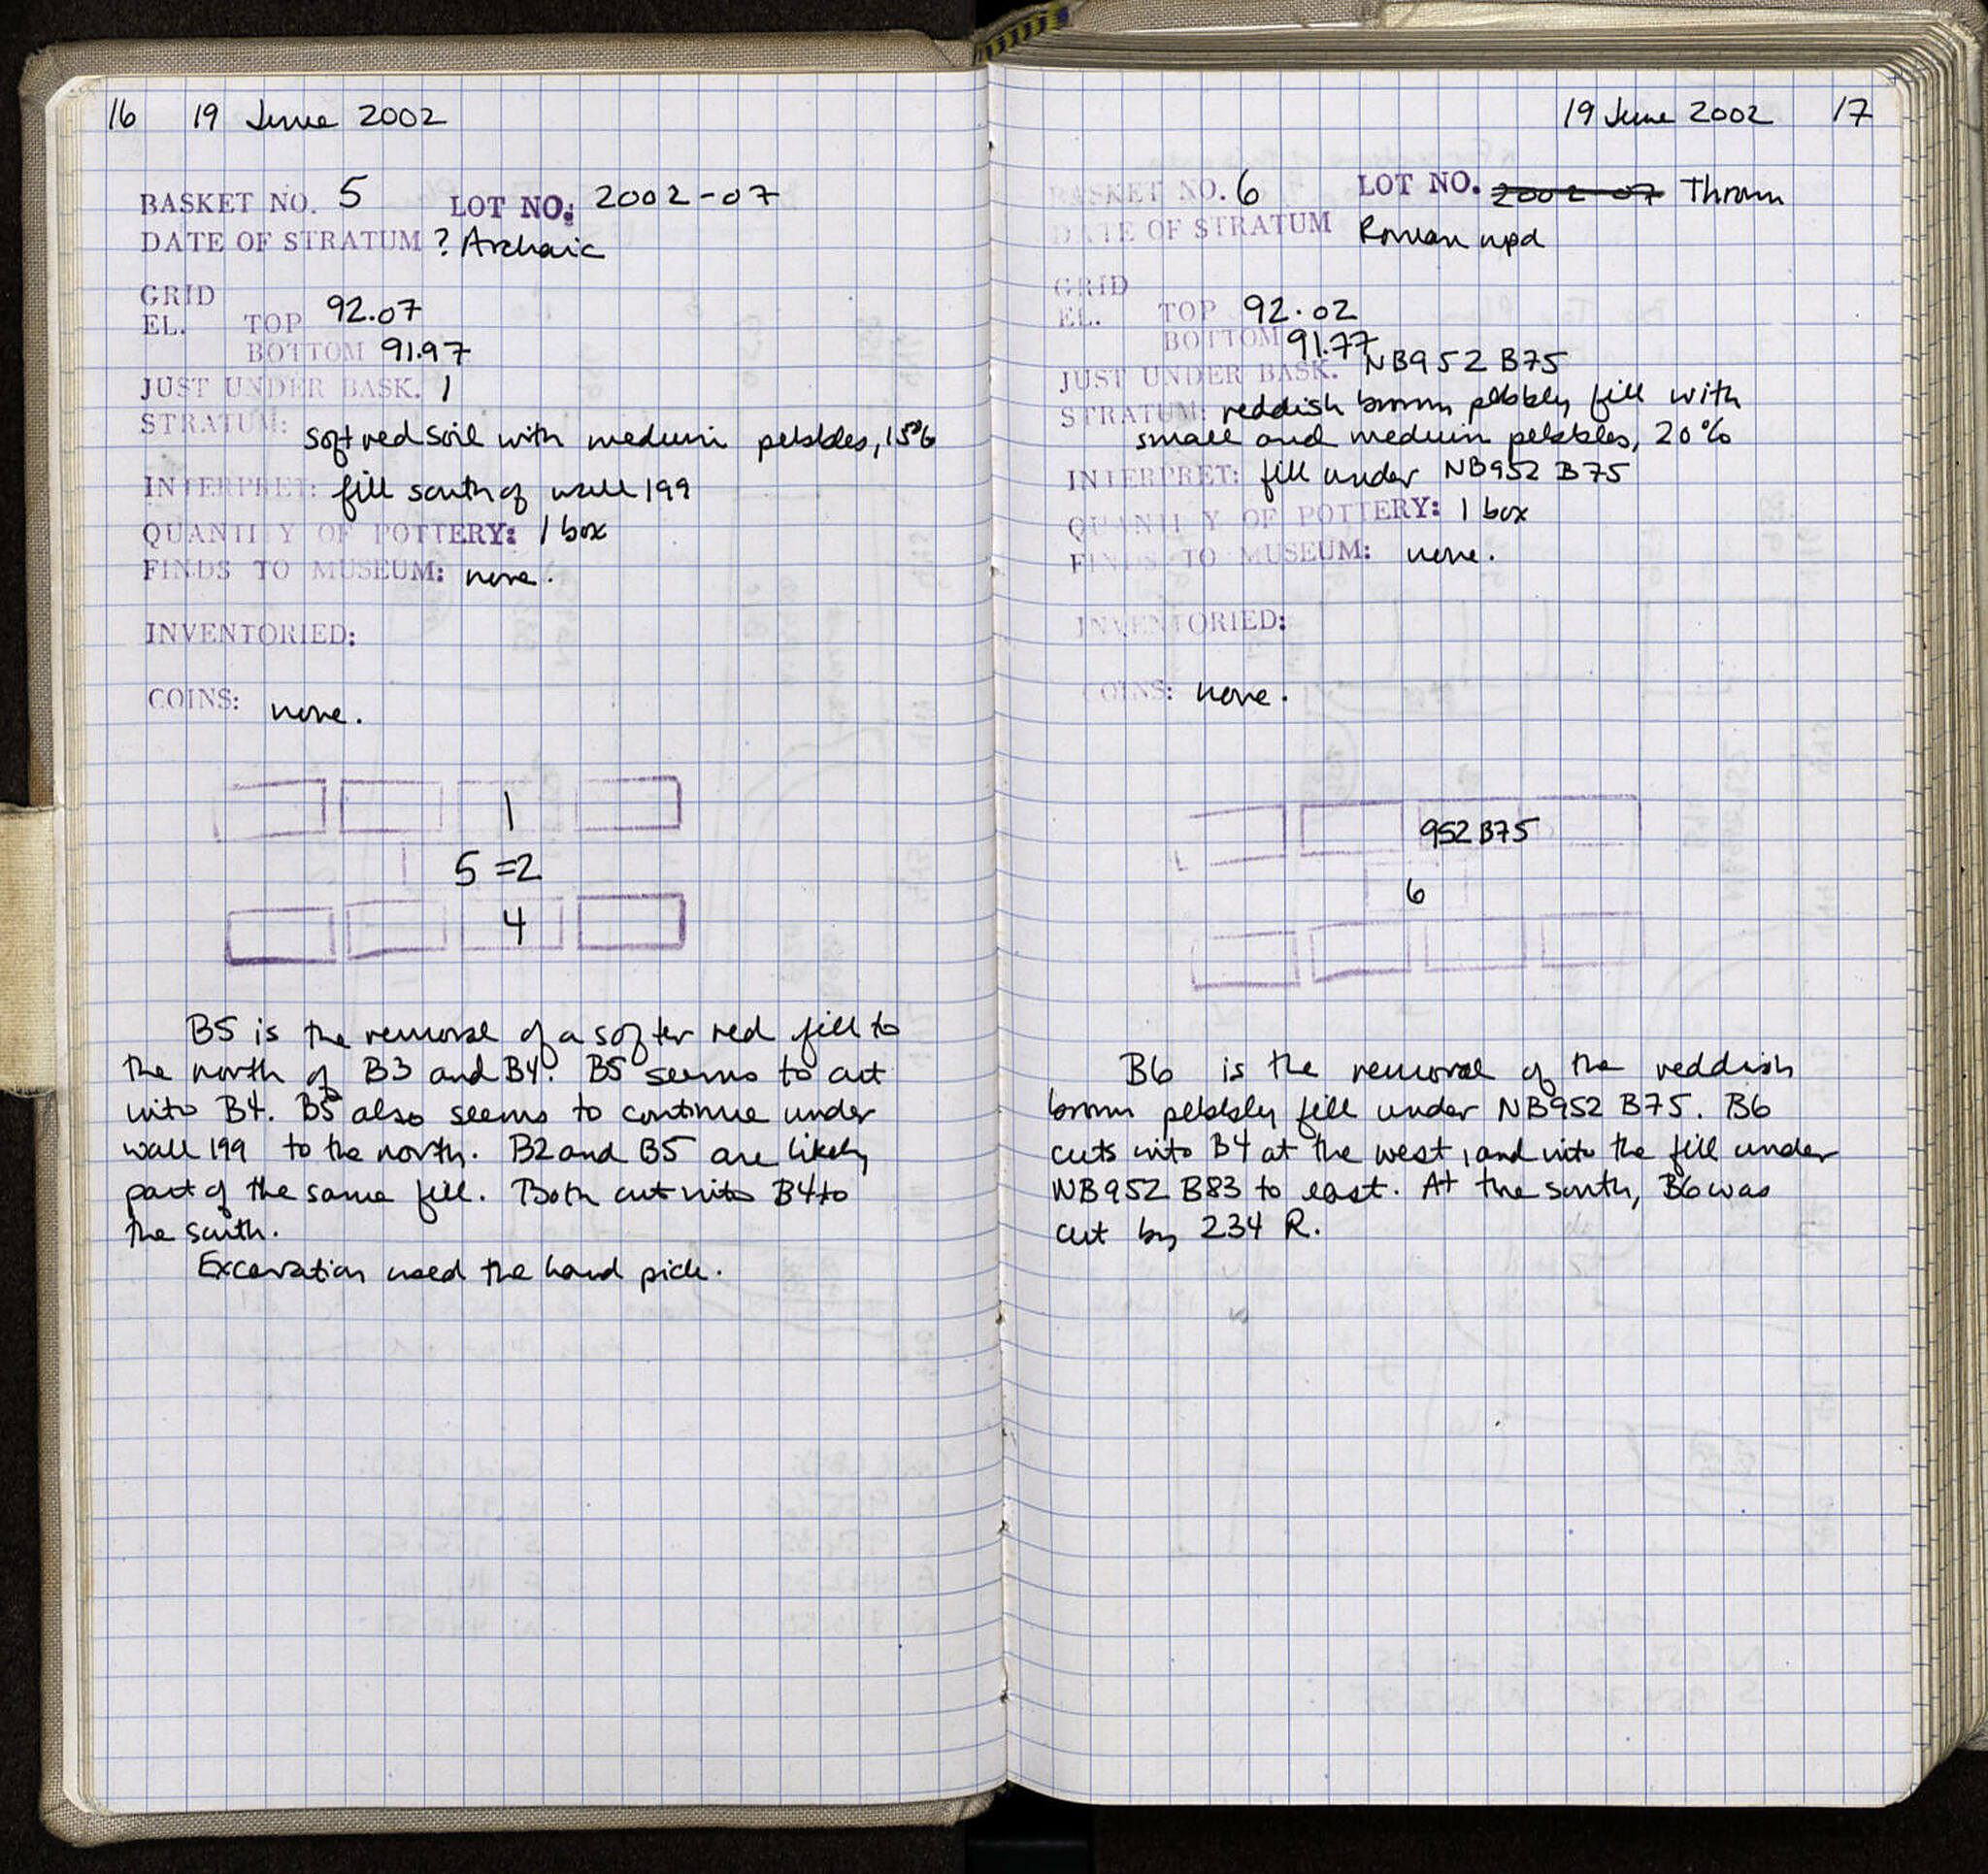 16 19 June 2002
BASKET NO. 5 LOT NO: 2002-07
DATE OF STRATUM ? Archaic
GRID
EL. TOP 92.07
BOTTOM 91.97
JUST UNDER BASK. 1
STRATUM: soft red soil with medium pebbles, 15%
INTERPRET: fill south of wall 199
QUANTITY OF POTTERY: 1 box
FINDS TO MUSEUM: none.
INVENTORIED:
COINS: none.
1
5 =2
4
B5 is the removal of a softer red fill to
the north of B3 and B4. B5 seems to cut
into B4. B5 also seems to continue under
wall 199 to the north. B2 and B5 are likely
part of the same fill. Both cut into B4 to
the south.
Excavation used the hand pick.
19 June 2002 17
BASKET NO. 6 LOT NO. 2002-07 Thrown
DATE OF STRATUM Roman npd
GRID
EL. TOP 92.02
BOTTOM 91.77
JUST UNDER BASK. NB952 B75
STRATUM: reddish brown pebbly fill with
small and medium pebbles, 20%
INTERPRET: fill under NB952 B75
QUANTITY OF POTTERY: 1 box
FINDS TO MUSEUM: none.
INVENTORIED:
COINS: none.
952 B75
6
B6 is the removal of the reddish
brown pebbly fill under NB952 B75. B6
cuts into B4 at the west, and into the fill under
NB952 B83 to east. At the south, B6 was
cut by 234 R.